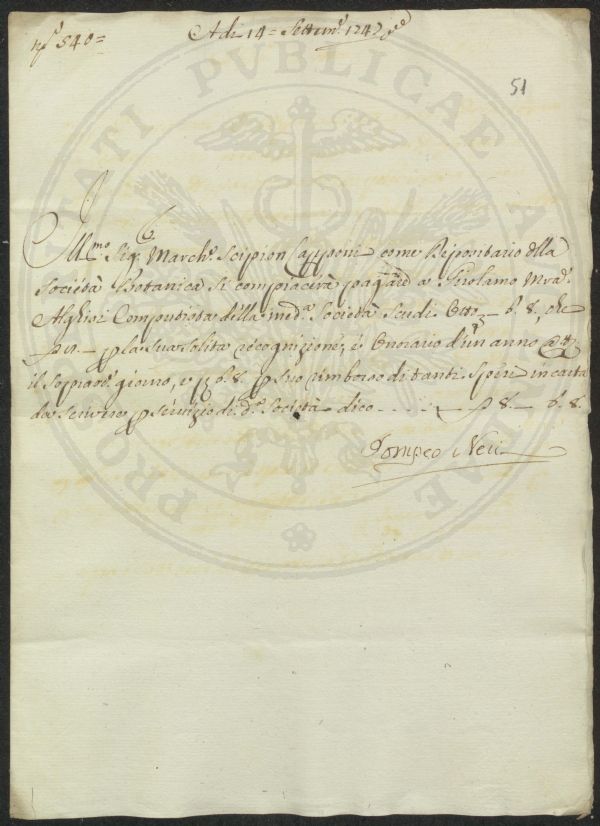 N.º 540=
A di 14= Settem.e 1747
51
Ill.mo Sig.r March.e Scipion Capponi come Depositario della
Società Botanica si compiacerà pagare a Girolamo M.a
Alghisi Computista della med.a Società Scudi Otto, — £. 8, che
la sua solita recognizione, è Onorario d'un anno
il sopra.o giorno, e £. 8. p suo rimborso di tanti spesi in carta
da scrivere p servizio di d.a Società dico - - - - 8. — £. 8.
Pompeo Neri
PVBLICAE